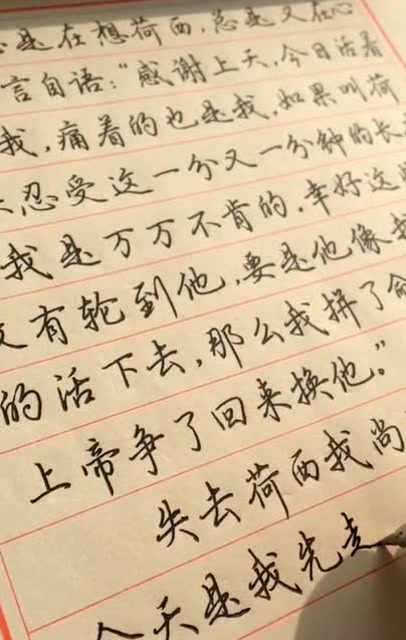 是在想荷西,总是又在心
言自语:“感谢上天,今日活着
我,痛着的也是我,如果叫荷
忍受这一分又一分钟的长
我是万万不肯的,幸好这
有轮到他,要是他像我
的活下去,那么我拼了命
上帝争了回来换他。”
失去荷西我尚
今天是我先走